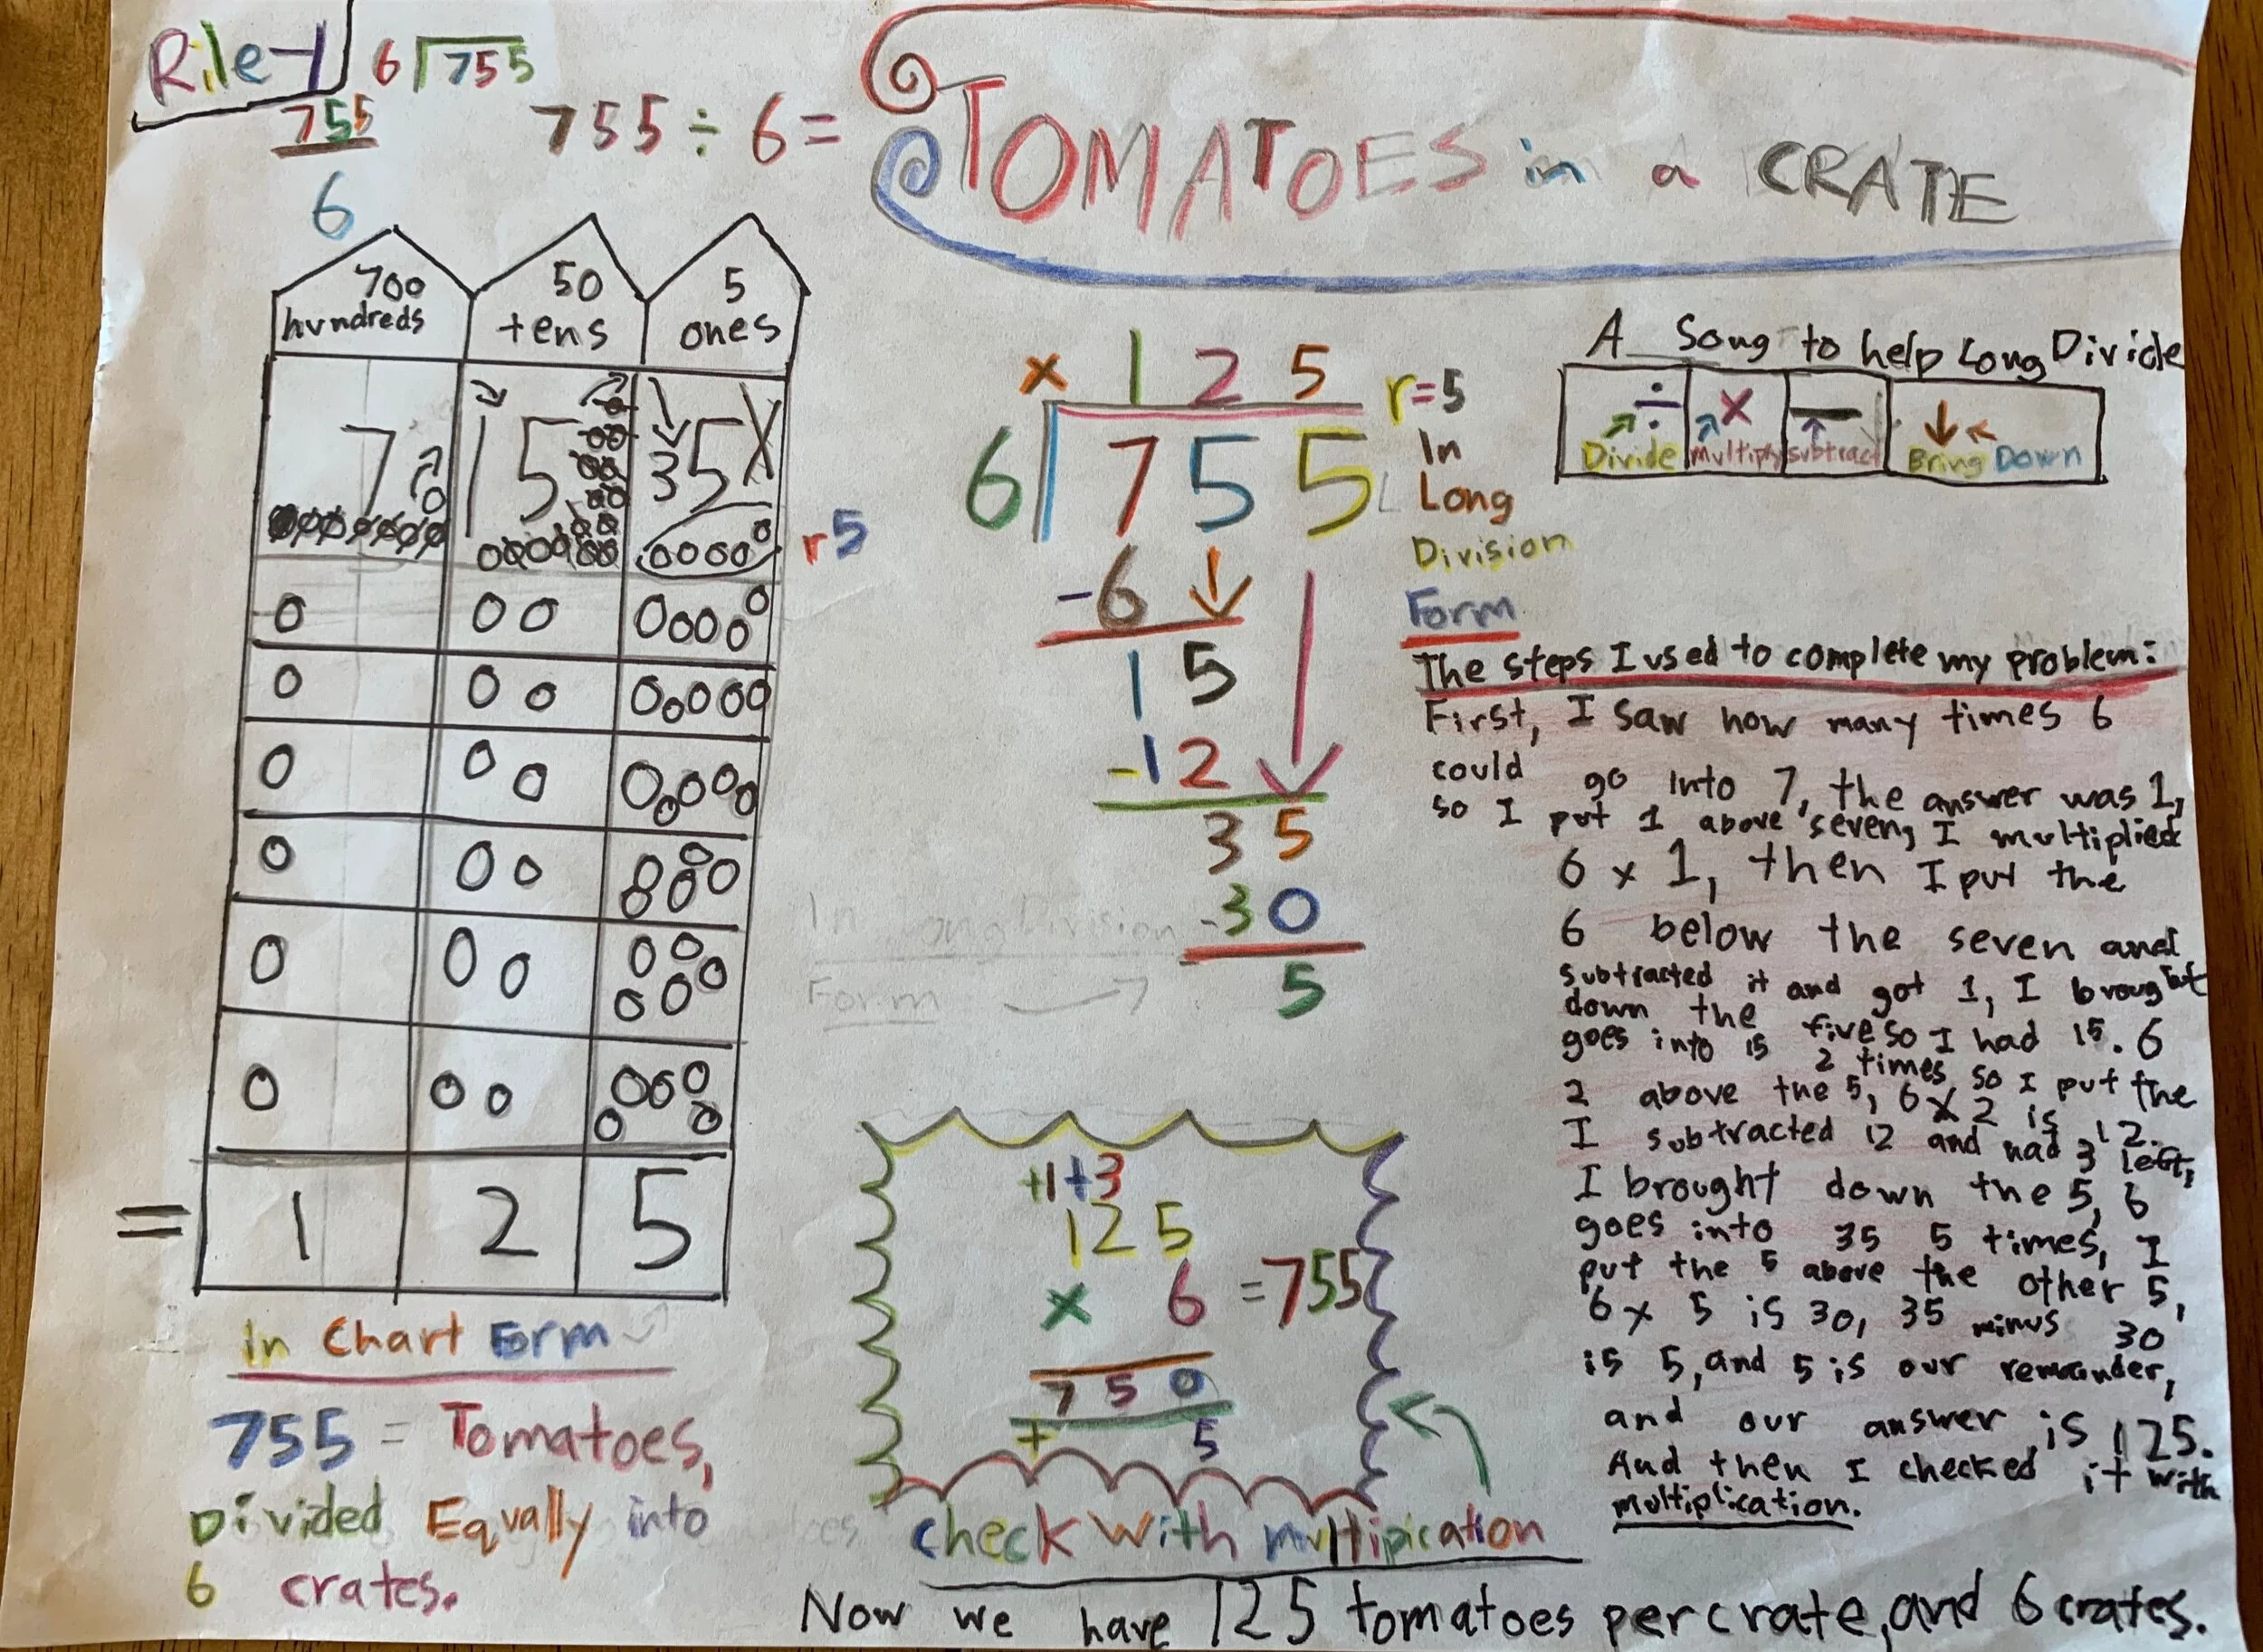 Riley
6 755
755
6
755 ÷ 6 =
TOMATOES in a CRATE
700 50 5
hundreds tens ones
7 15 35
r5
= 1 2 5
in Chart Form
755 = Tomatoes,
Divided Equally into
6 crates.
x 1 2 5 r=5
6 7 5 5
In
Long
Division
Form
-6
1 5
-12
3 5
-30
5
In Long Division
Form
A Song to help Long Divide
÷ x − 
Divide multiply subtract Bring Down
The steps I used to complete my problem:
First, I saw how many times 6
could go into 7, the answer was 1,
so I put 1 above seven, I multiplied
6 x 1, then I put the
6 below the seven and
subtracted it and got 1, I brought
down the five so I had 15. 6
goes into 15 2 times, so I put the
2 above the 5, 6 x 2 is 12.
I subtracted 12 and had 3 left,
I brought down the 5, 6
goes into 35 5 times, I
put the 5 above the other 5,
6 x 5 is 30, 35 minus 30
is 5, and 5 is our remainder,
and our answer is 125.
And then I checked it with
multiplication.
+1+3
125
x 6 =755
750
+ 5
check with multipication
Now we have 125 tomatoes per crate, and 6 crates.